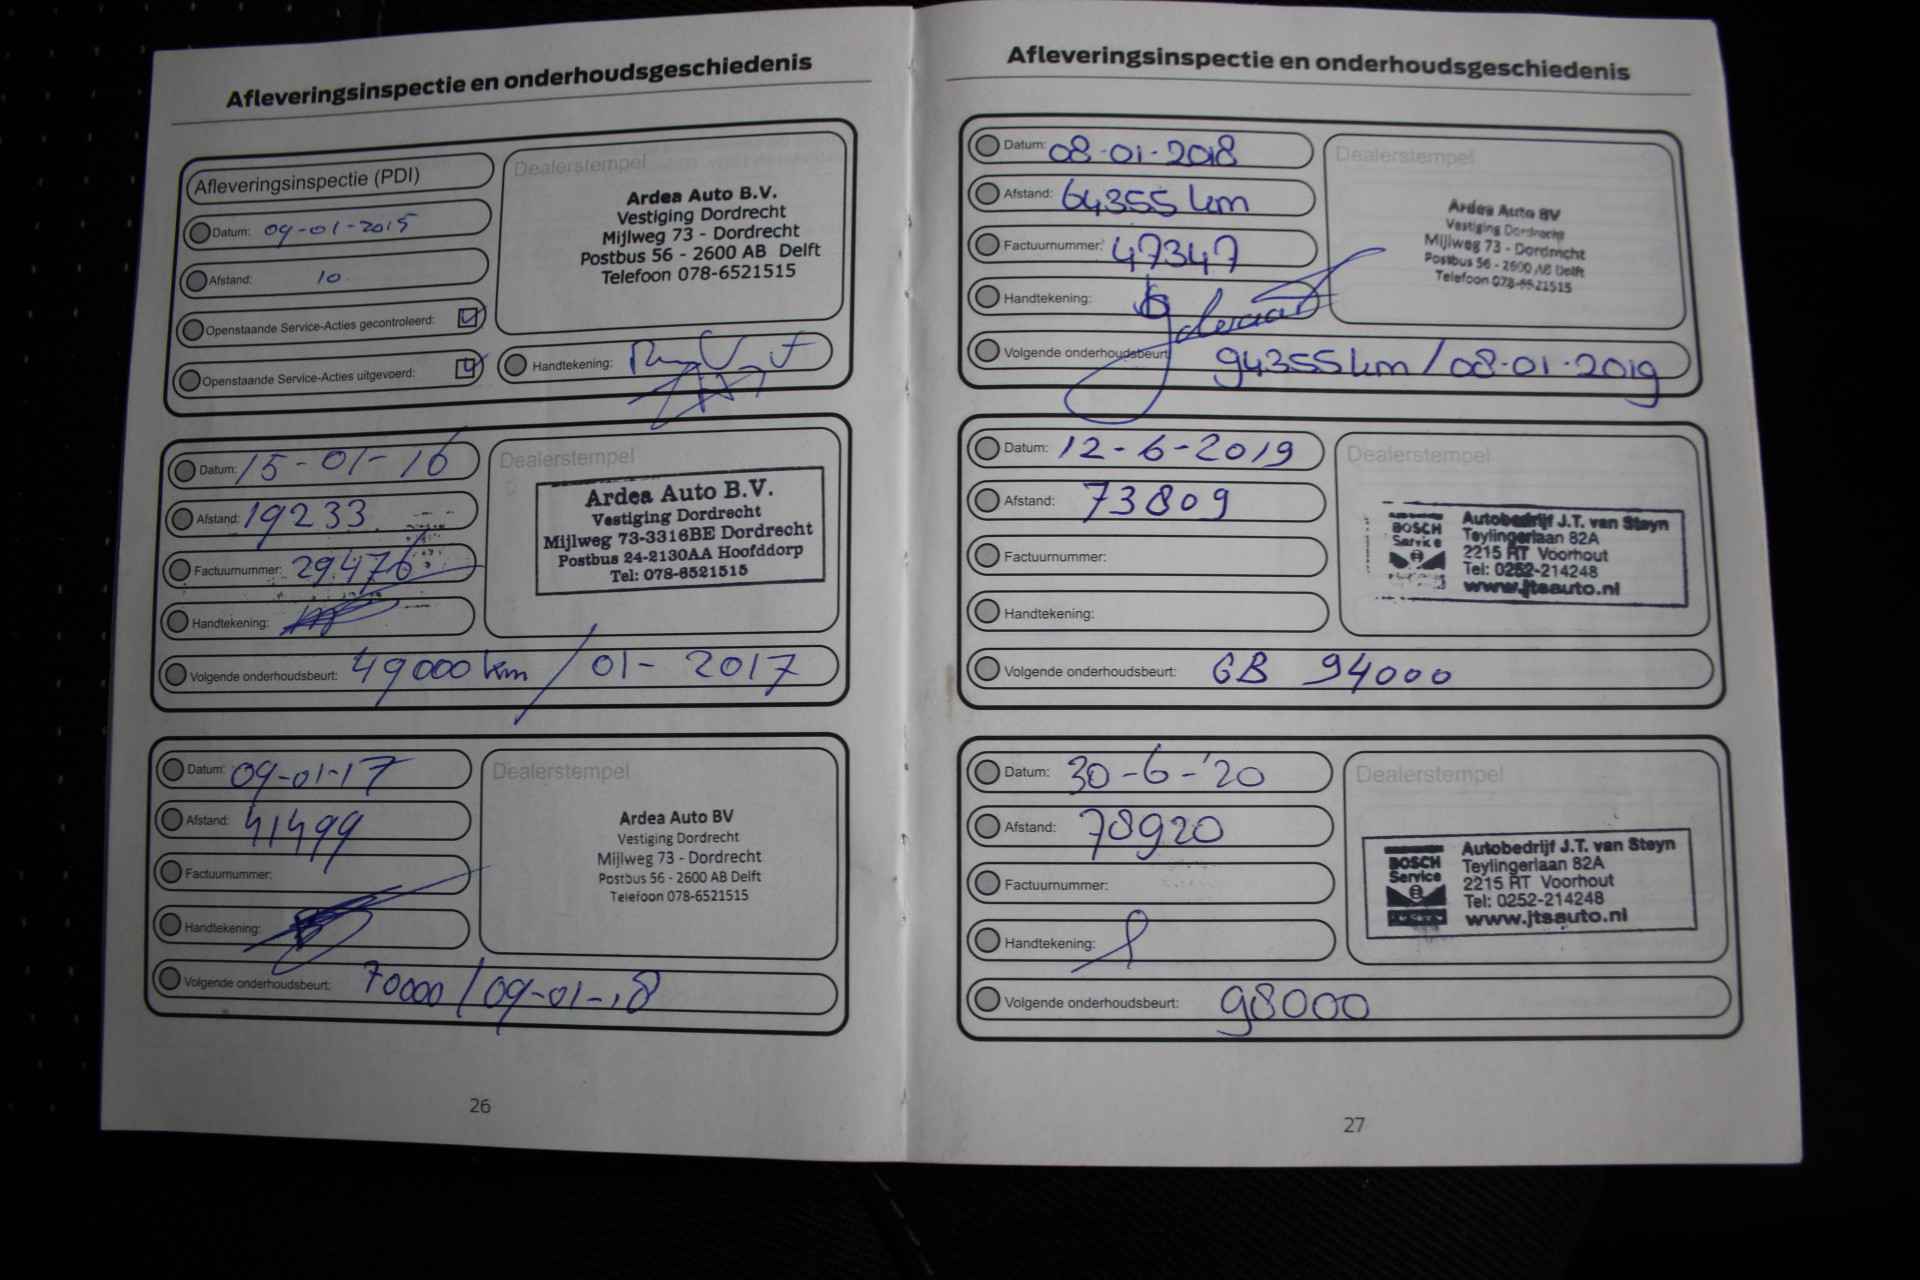 Afleveringsinspectie en onderhoudsgeschiedenis
Afleveringsinspectie (PDI)
Datum: 09-01-2015
Afstand: 10
Openstaande Service-Acties gecontroleerd:
Openstaande Service-Acties uitgevoerd:
Dealerstempel
Ardea Auto B.V.
Vestiging Dordrecht
Mijlweg 73 - Dordrecht
Postbus 56 - 2600 AB Delft
Telefoon 078-6521515
Handtekening:
Datum: 15-01-16
Afstand: 19233
Factuurnummer: 29476
Handtekening:
Dealerstempel
Ardea Auto B.V.
Vestiging Dordrecht
Mijlweg 73-3316BE Dordrecht
Postbus 24-2130AA Hoofddorp
Tel: 078-6521515
Volgende onderhoudsbeurt: 49000 km / 01- 2017
Datum: 09-01-17
Afstand: 41499
Factuurnummer:
Handtekening:
Dealerstempel
Ardea Auto BV
Vestiging Dordrecht
Mijlweg 73 - Dordrecht
Postbus 56 - 2600 AB Delft
Telefoon 078-6521515
Volgende onderhoudsbeurt: 70000 / 09-01-18
26
Afleveringsinspectie en onderhoudsgeschiedenis
Datum: 08-01-2018
Afstand: 64355 km
Factuurnummer: 47347
Handtekening:
Dealerstempel
Ardea Auto BV
Vestiging Dordrecht
Mijlweg 73 - Dordrecht
Postbus 56 - 2600 AB Delft
Telefoon 078-6521515
Volgende onderhoudsbeurt: 94355 km / 08-01-2019
Datum: 12-6-2019
Afstand: 73809
Factuurnummer:
Handtekening:
Dealerstempel
BOSCH
Service
Autobedrijf J.T. van Steyn
Teylingerlaan 82A
2215 RT Voorhout
Tel: 0252-214248
www.jtsauto.nl
Volgende onderhoudsbeurt: GB 94000
Datum: 30-6-'20
Afstand: 78920
Factuurnummer:
Handtekening:
Dealerstempel
BOSCH
Service
Autobedrijf J.T. van Steyn
Teylingerlaan 82A
2215 RT Voorhout
Tel: 0252-214248
www.jtsauto.nl
Volgende onderhoudsbeurt: 98000
27